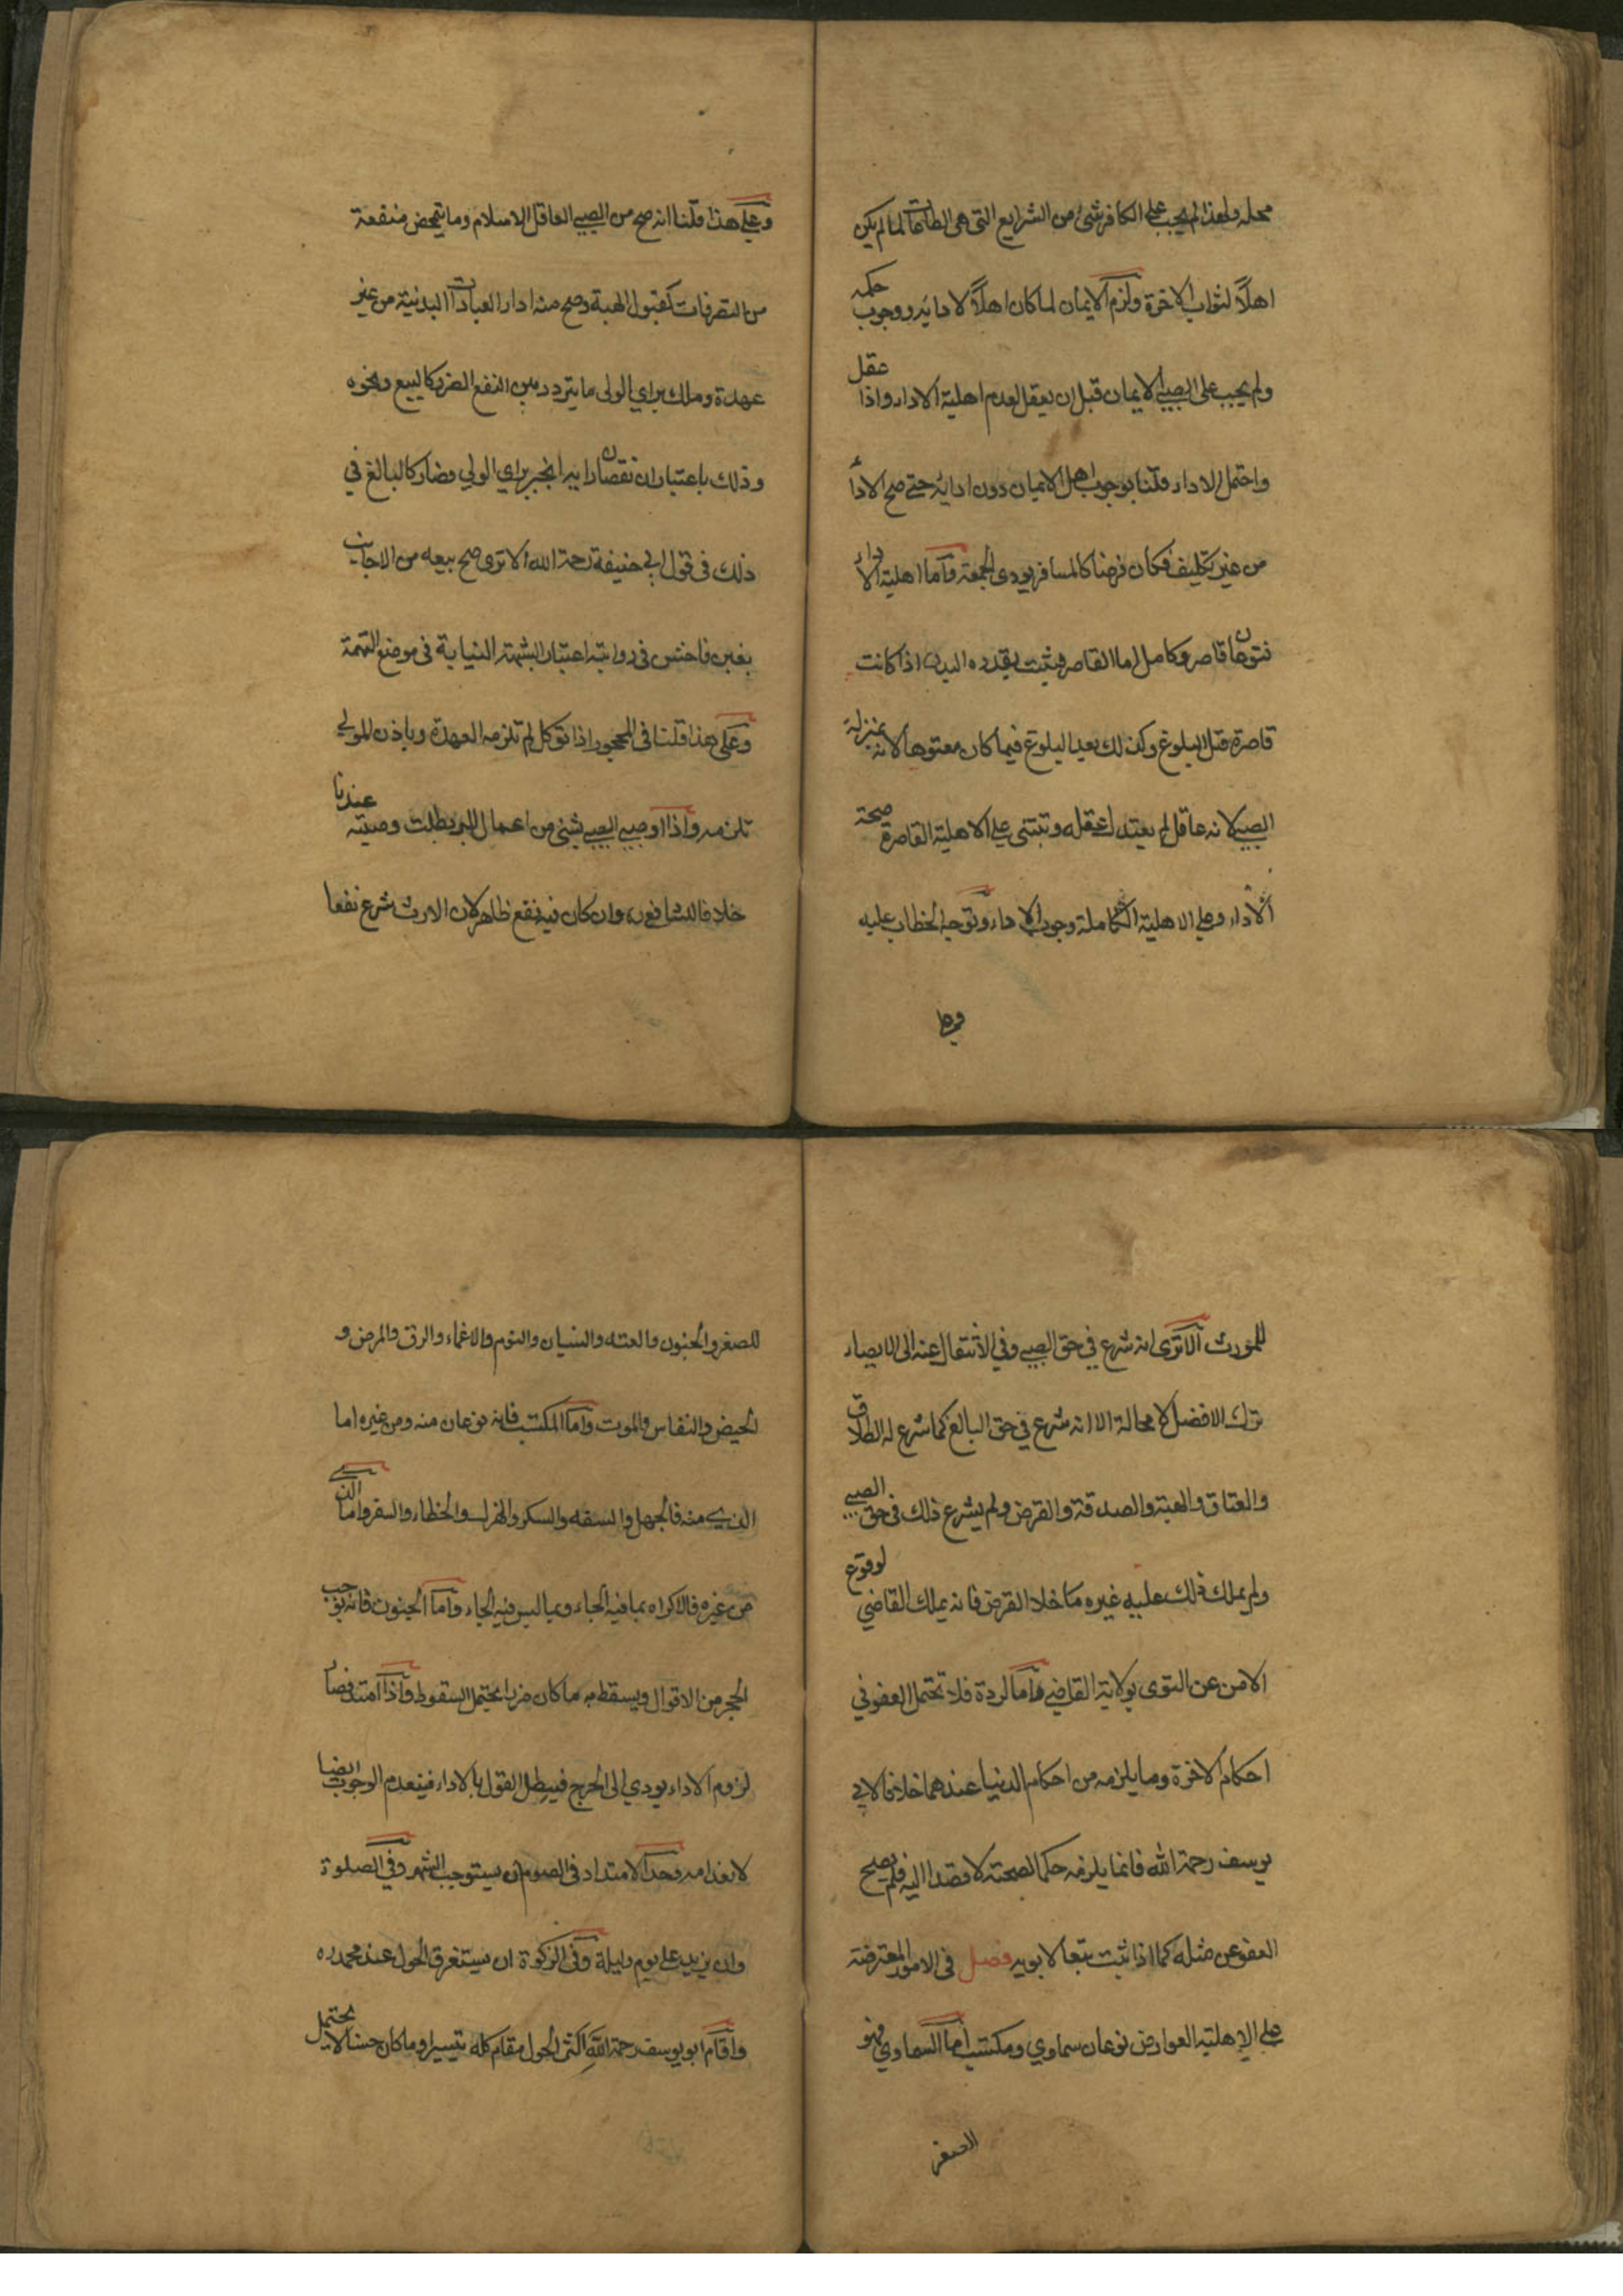 محله ولهذا لم يجب على الكافر شئ من الشرايع التى هى الطاعات لما لم يكن
اهلاً لثواب الاخرة ولزم الايمان لما كان اهلاً لادايه ووجوب حكمه
ولم يجب على الصبى الايمان قبل ان يعقل لعدم اهلية الاداء واذا عقل
واحتمل الاداء قلنا بوجوب اصل الايمان دون ادايه حتى صح الادآء
من غير تكليف فكان فرضا كالمسافر يودى الجمعة وآما اهلية الاداء
فنوعان قاصر وكامل اما القاصر فيثبت بقدره البدن اذا كانت
قاصرة قبل البلوغ وكذلك بعد البلوغ فيما كان معتوها لانه بمنزلة
الصبى لانه عاقل لم يعتدل عقله وتبتنى على الاهلية القاصرة صحة
الآداء وعلى الاهلية الكاملة وجوب الاداء وتوجه الخطاب عليه
وعلى هذا قلنا انه صح من الصبى العاقل الاسلام وما يتمحض منفعة
من التصرفات كقبول الهبة وصح منه اداء العبادات البدنية من غير
عهدة وملك براي الولى ما يتردد بين النفع الضر كالبيع ونحوه
وذلك باعتبار ان نقصان رايه انجبر براي الولي فصار كالبالغ في
ذلك فى قول ابى حنيفة رحمة الله الا ترى صح بيعه من الاجانب
بغبن فاحش فى رواية اعتبار الشبهة النيابة فى موضع التهمة
وعلى هذا قلنا فى المحجور اذا توكل لم تلزمه العهدة وباذن المولى
تلزمه واذا اوصى الصبى بشئ من اعمال البر بطلت وصيته عندنا
خلافا للشافعى ره وان كان فيه نفع ظاهر لان الارث شرع نفعا
للمورث آلا ترى انه شرع فى حق الصبى وفى الانتقال عنه الى الايصاء
ترك الافضل لا محالة الا انه شرع فى حق البالغ كما شرع له الطلاق
والعتاق والهبة والصدقة والقرض ولم يشرع ذلك فى حق الصبى
ولم يملك ذلك عليه غيره ما خلا القرض فانه يملك القاضي لوقوع
الامن عن التوى بولاية القاضى وآما الردة فلا تحتمل العفو فى
احكام الاخرة وما يلزمه من احكام الدنيا عندهما خلافا لابى
يوسف رحمة الله فانما يلزمه حكما لصحته لا قصدا اليه فلم يصح
العفو عن مثله كما اذا ثبت تبعا لابويه فصل فى الامور المعترضة
على الاهلية العوارض نوعان سماوي ومكتسب أما السماوي فهو
الصغر
للصغر والجنون والعته والنسيان والنوم والاغماء والرق والمرض و
الحيض والنفاس والموت وآما المكتسب فانه نوعان منه ومن غيره اما
الذى منه فالجهل والسفه والسكر والهزل والخطاء والسفر واما الذى
من غيره فالاكراه بما فيه الجاء وبما ليس فيه الجاء وآما الجنون فانه يوجب
الحجر من الاقوال ويسقط به ما كان ضررا يحتمل السقوط وآذا امتد فصار
لزوم الاداء يودي الى الحرج فيبطل القول بالاداء فينعدم الوجوب ايضا
لانعدامه وحد الامتداد فى الصوم ان يستوجب الشهر وفى الصلوة
وان يزيد على يوم وليلة وفى الزكوة ان يستغرق الحول عند محمد ره
واقام ابو يوسف رحمة الله اكثر الحول مقام كله تيسيرا وما كان حسنا لا يحتمل